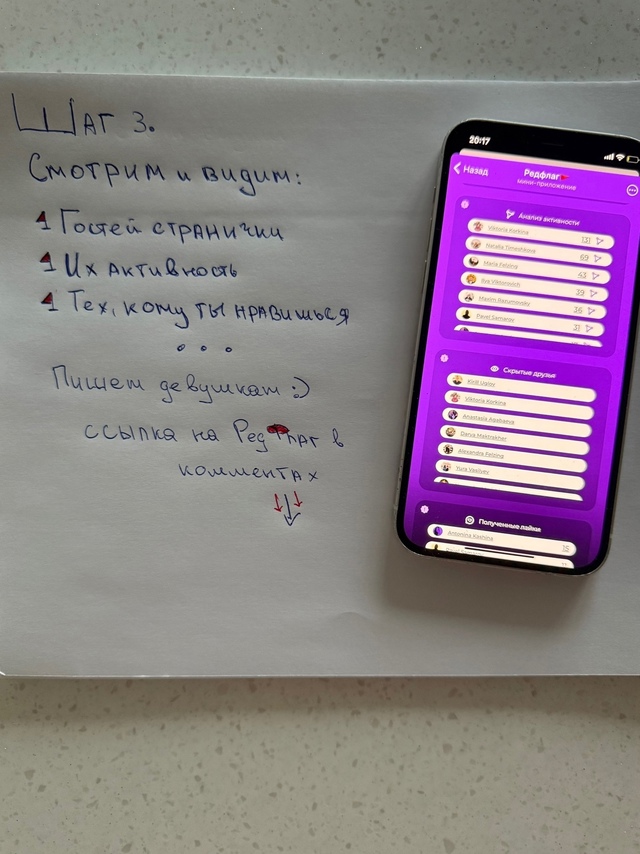 Шаг 3.
Смотрим и видим:
Гостей странички
Их активность
Тех, кому ты нравишься
...
Пишем девушкам :)
ссылка на Редфлаг в
комментах
20:17
Назад
Редфлаг
мини-приложение
Анализ активности
Viktoria Korkina 131
Natalia Timoshkova 69
Maria Felzing 43
Ilya Viktorovich 39
Maxim Razumovsky 36
Pavel Serbarov 31
Скрытые друзья
Kirill Uglov
Viktoria Korkina
Anastasia Agabaeva
Darya Maktrakher
Alexandra Felzing
Yura Vasilyev
Полученные лайки
Antonina Kashina 15